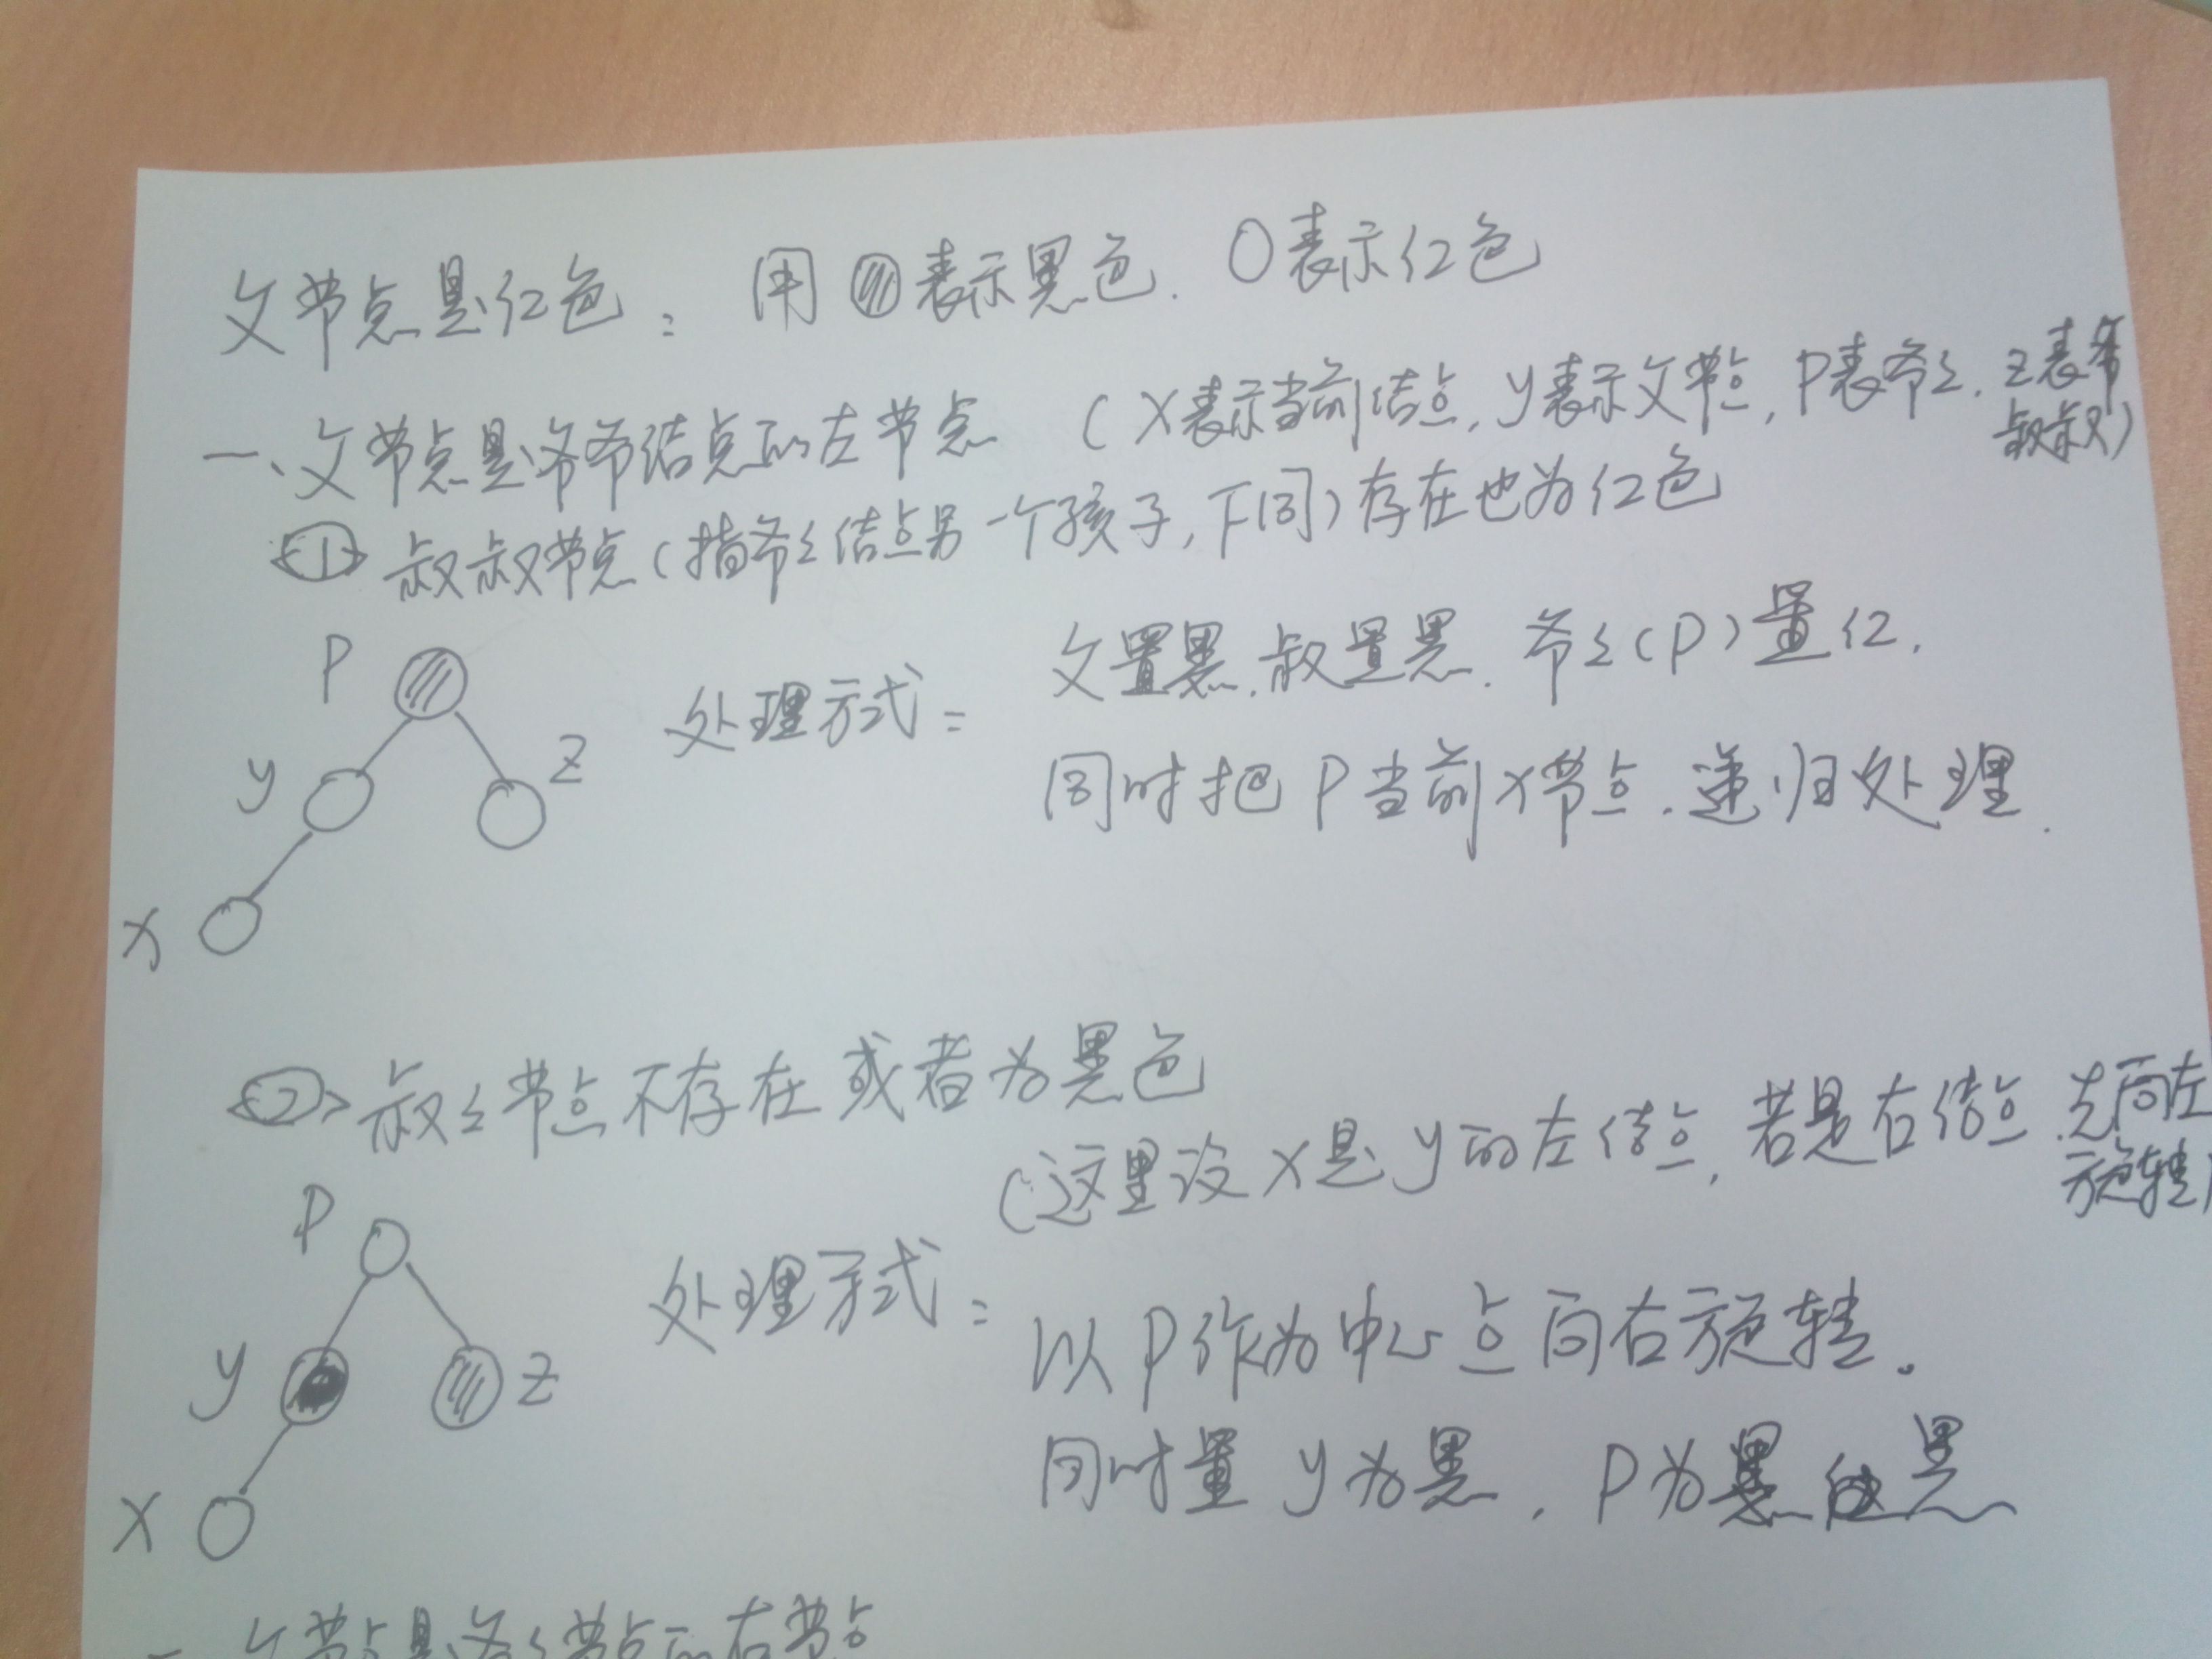 父节点是红色: 用 表示黑色. ○表示红色
一、父节点是爷爷结点的左节点 (X表示当前结点, y表示父节点, P表爷爷, z表爷叔叔)
① 叔叔节点(指爷爷结点另一个孩子,下同)存在也为红色
P
y
z
x
处理方式:
父置黑.叔置黑.爷爷(P)置红.
同时把P当前x节点.递归处理.
② 叔叔节点不存在或者为黑色
(这里设x是y的左结点,若是右结点.先向左旋转)
P
y
z
x
处理方式:
以P作为中心点向右旋转。
同时置y为黑, P为黑
父节点是爷爷节点的右节点